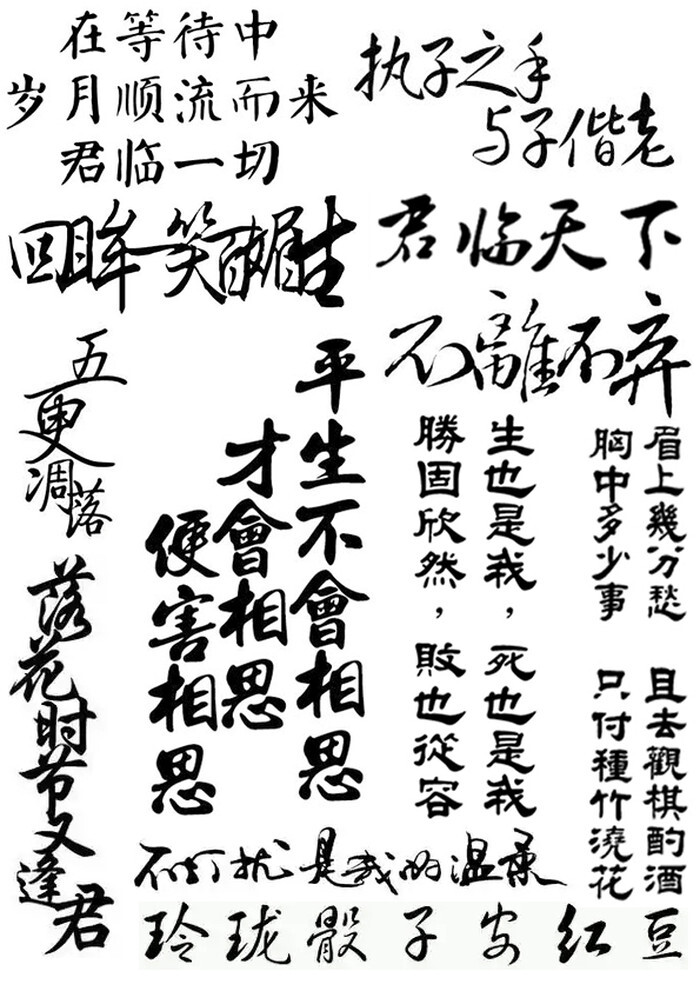 在等待中
岁月顺流而来
君临一切
执子之手
与子偕老
回眸一笑百媚生
君临天下
不離不弃
五更凋落
平生不會相思
才會相思
便害相思
生也是我，死也是我
勝固欣然，敗也從容
眉上幾分愁
胸中多少事
且去觀棋酌酒
只付種竹澆花
落花时节又逢君
不打扰是我的温柔
玲珑骰子安红豆